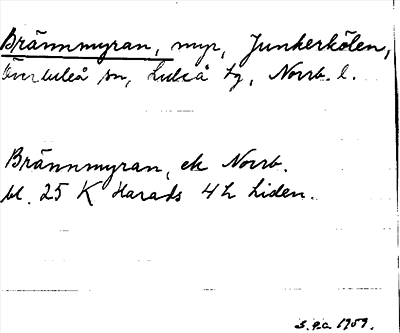 Brännmyran, myr, Junkerkölen,
Överluleå sn, Luleå tg, Norrb. l.
Brännmyran, ek Norrb.
bl. 25 K Harads 4 h Liden.
S.g.a. 1959.